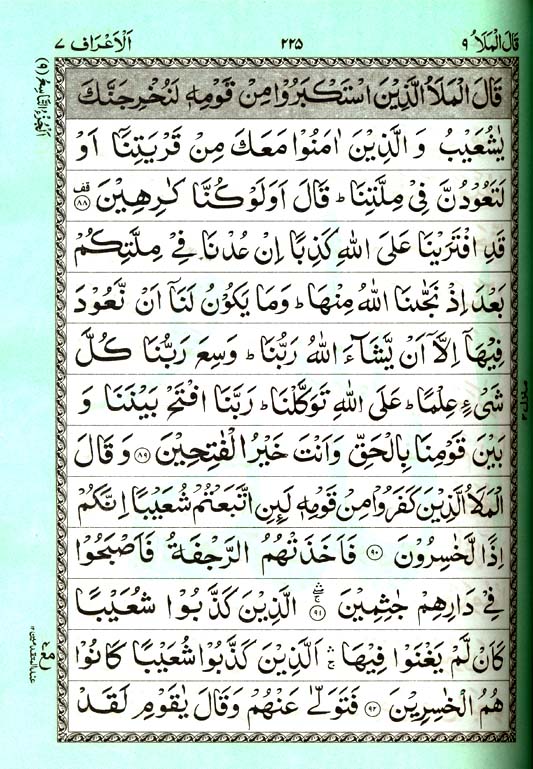 قَالَ الْمَلَاُ ٩
٢٢٥
اَلْاَعْرَاف ٧
اَلْجُزْءُ التَّاسِعُ (٩)
قَالَ الْمَلَاُ الَّذِيْنَ اسْتَكْبَرُوْا مِنْ قَوْمِهٖ لَنُخْرِجَنَّكَ
يٰشُعَيْبُ وَ الَّذِيْنَ اٰمَنُوْا مَعَكَ مِنْ قَرْيَتِنَاۤ اَوْ
لَتَعُوْدُنَّ فِيْ مِلَّتِنَا ؕ قَالَ اَوَلَوْ كُنَّا كٰرِهِيْنَ ۟ قف ٨٨
قَدِ افْتَرَيْنَا عَلَى اللّٰهِ كَذِبًا اِنْ عُدْنَا فِيْ مِلَّتِكُمْ
بَعْدَ اِذْ نَجّٰىنَا اللّٰهُ مِنْهَا ؕ وَمَا يَكُوْنُ لَنَاۤ اَنْ نَّعُوْدَ
فِيْهَاۤ اِلَّاۤ اَنْ يَّشَآءَ اللّٰهُ رَبُّنَا ؕ وَسِعَ رَبُّنَا كُلَّ
شَيْءٍ عِلْمًا ؕ عَلَى اللّٰهِ تَوَكَّلْنَا ؕ رَبَّنَا افْتَحْ بَيْنَنَا وَ
بَيْنَ قَوْمِنَا بِالْحَقِّ وَاَنْتَ خَيْرُ الْفٰتِحِيْنَ ٨٩ وَ قَالَ
الْمَلَاُ الَّذِيْنَ كَفَرُوْا مِنْ قَوْمِهٖ لَىِٕنِ اتَّبَعْتُمْ شُعَيْبًا اِنَّكُمْ
اِذًا لَّخٰسِرُوْنَ ٩٠ فَاَخَذَتْهُمُ الرَّجْفَةُ فَاَصْبَحُوْا
فِيْ دَارِهِمْ جٰثِمِيْنَ ٩١ الَّذِيْنَ كَذَّبُوْا شُعَيْبًا
كَاَنْ لَّمْ يَغْنَوْا فِيْهَا ۛۚ اَلَّذِيْنَ كَذَّبُوْا شُعَيْبًا كَانُوْا
هُمُ الْخٰسِرِيْنَ ٩٢ فَتَوَلّٰى عَنْهُمْ وَقَالَ يٰقَوْمِ لَقَدْ